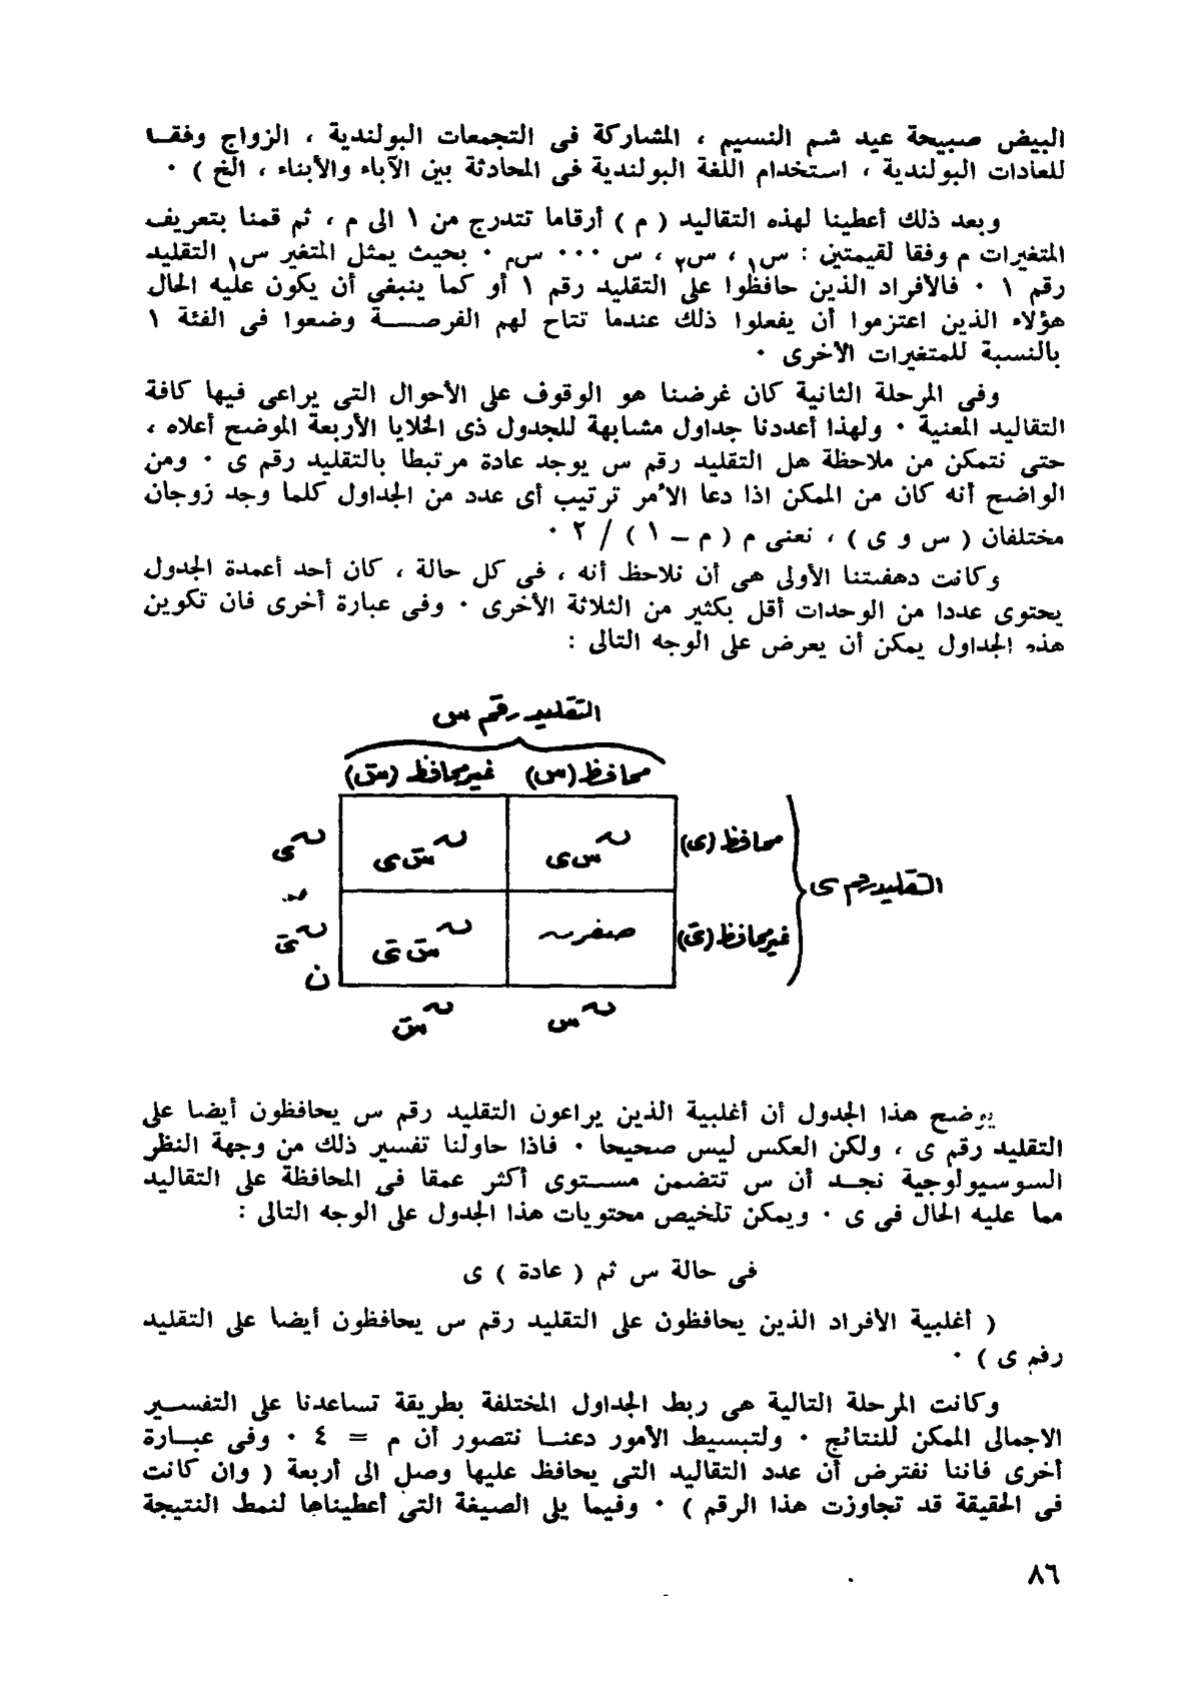 البيض صبيحة عيد شم النسيم ، المشاركة فى التجمعات البولندية ، الزواج وفقـا
للعادات البولندية ، استخدام اللغة البولندية فى المحادثة بين الآباء والأبناء ، الخ ) ٠
وبعد ذلك أعطينا لهذه التقاليد ( م ) أرقاما تتدرج من ١ الى م ، ثم قمنا بتعريف
المتغيرات م وفقا لقيمتين : س١ ، س٢ ، س ٠٠٠ سم ٠ بحيث يمثل المتغير س١ التقليد
رقم ١ ٠ فالأفراد الذين حافظوا على التقليد رقم ١ أو كما ينبغى أن يكون عليه الحال
هؤلاء الذين اعتزموا أن يفعلوا ذلك عندما تتاح لهم الفرصـــة وضعوا فى الفئة ١
بالنسبة للمتغيرات الأخرى ٠
وفى المرحلة الثانية كان غرضنا هو الوقوف على الأحوال التى يراعى فيها كافة
التقاليد المعنية ٠ ولهذا أعددنا جداول مشابهة للجدول ذى الخلايا الأربعة الموضح أعلاه ،
حتى نتمكن من ملاحظة هل التقليد رقم س يوجد عادة مرتبطا بالتقليد رقم ى ٠ ومن
الواضح أنه كان من الممكن اذا دعا الأمر ترتيب أى عدد من الجداول كلما وجد زوجان
مختلفان ( س و ى ) ، نعنى م ( م – ١ ) / ٢ ٠
وكانت دهفستنا الأولى هى أن نلاحظ أنه ، فى كل حالة ، كان أحد أعمدة الجدول
يحتوى عددا من الوحدات أقل بكثير من الثلاثة الأخرى ٠ وفى عبارة أخرى فان تكوين
هذه الجداول يمكن أن يعرض على الوجه التالى :
التقليد رقم س
محافظ (س) غير محافظ (سَ)
محافظ (ى) ن س ى ن سَ ى ن ى
التقليد رقم ى
غير محافظ (ىَ) صفر ن سَ ىَ ن ىَ
ن
ن س ن سَ
يوضح هذا الجدول أن أغلبية الذين يراعون التقليد رقم س يحافظون أيضا على
التقليد رقم ى ، ولكن العكس ليس صحيحا ٠ فاذا حاولنا تفسير ذلك من وجهة النظر
السوسيولوجية نجـد أن س تتضمن مستـوى أكثر عمقا فى المحافظة على التقاليد
مما عليه الحال فى ى ٠ ويمكن تلخيص محتويات هذا الجدول على الوجه التالى :
فى حالة س ثم ( عادة ) ى
( أغلبية الأفراد الذين يحافظون على التقليد رقم س يحافظون أيضا على التقليد
رقم ى ) ٠
وكانت المرحلة التالية هى ربط الجداول المختلفة بطريقة تساعدنا على التفسـير
الاجمالى الممكن للنتائج ٠ ولتبسيط الأمور دعنـا نتصور أن م = ٤ ٠ وفى عبـارة
أخرى فاننا نفترض أن عدد التقاليد التى يحافظ عليها وصل الى أربعة ( وان كانت
فى الحقيقة قد تجاوزت هذا الرقم ) ٠ وفيما يلى الصيغة التى أعطيناها لنمط النتيجة
٨٦